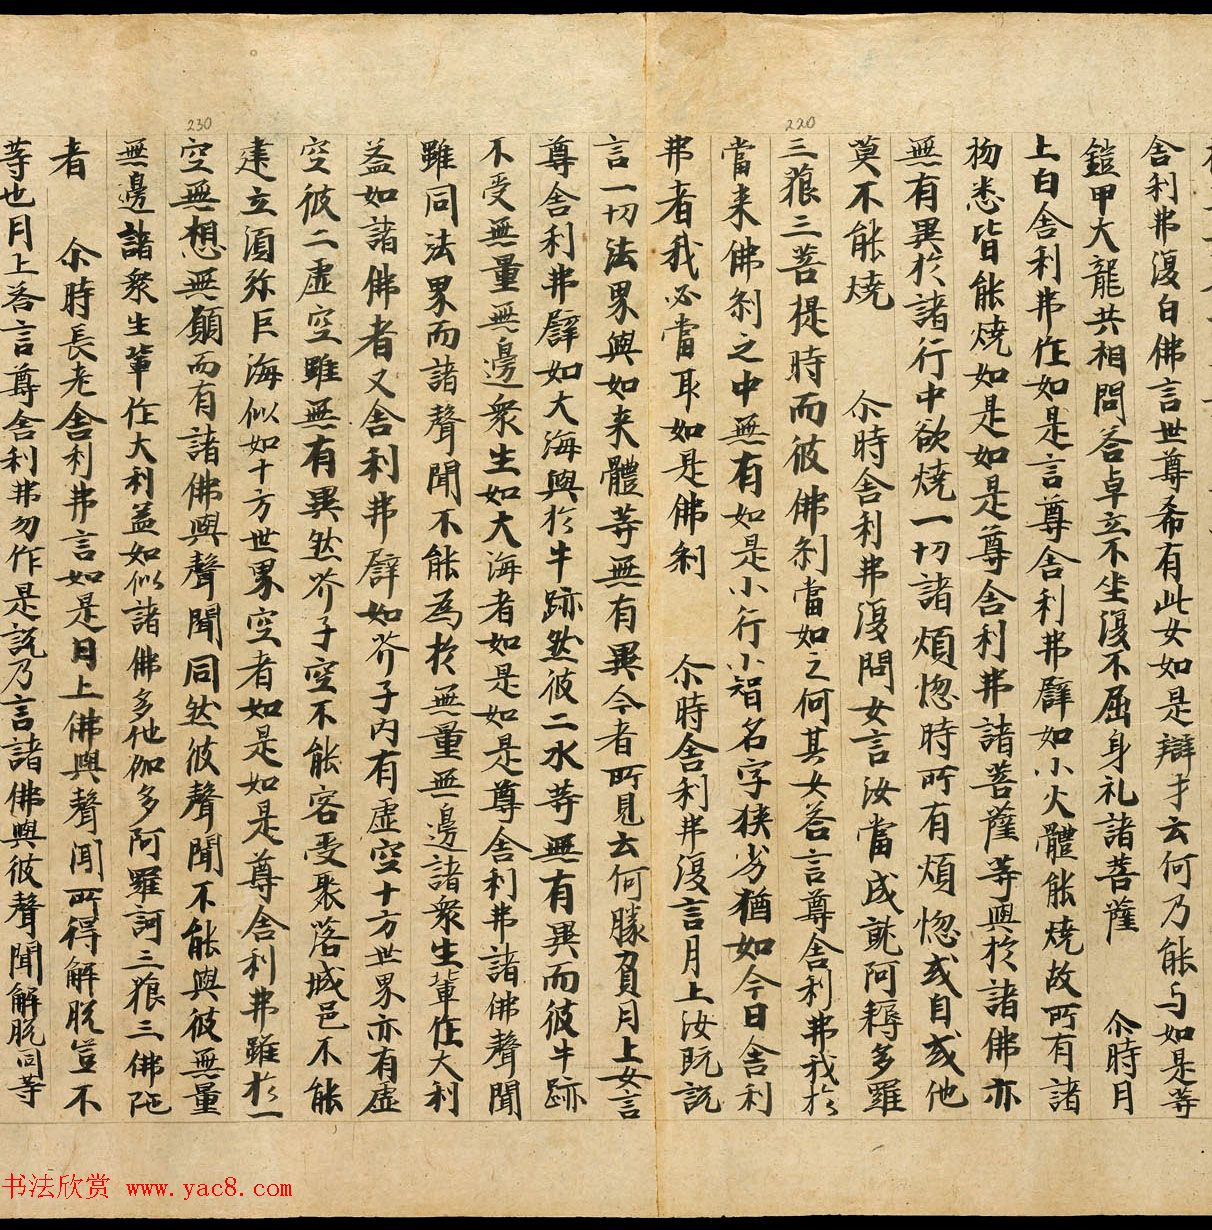 舍利弗復白佛言世尊希有此女如是辯才云何乃能与如是等
鎧甲大龍共相問荅卓立不坐復不屈身礼諸菩薩　尒時月
上白舍利弗作如是言尊舍利弗譬如小火體能燒故所有諸
物悉皆能燒如是如是尊舍利弗諸菩薩等與於諸佛亦
無有異於諸行中欲燒一切諸煩惚時所有煩惚或自或他
莫不能燒　尒時舍利弗復問女言汝當成就阿耨多羅
三藐三菩提時而彼佛刹當如之何其女荅言尊舍利弗我於
當来佛刹之中無有如是小行小智名字狹劣猶如今日舍利
弗者我必當取如是佛刹　尒時舍利弗復言月上汝既説
言一切法界與如来體等無有異今者所見云何勝負月上女言
尊舍利弗譬如大海與於牛跡然彼二水等無有異而彼牛跡
不受無量無邊衆生如大海者如是如是尊舍利弗諸佛聲聞
雖同法界而諸聲聞不能為於無量無邊諸衆生輩作大利
益如諸佛者又舍利弗譬如芥子内有虛空十方世界亦有虛
空彼二虛空雖無有異然芥子空不能容受聚落城邑不能
建立須弥巨海似如十方世界空者如是如是尊舍利弗雖於一
空無想無願而有諸佛與聲聞同然彼聲聞不能與彼無量
無邊諸衆生輩作大利益如似諸佛多他伽多阿羅訶三藐三佛陁
者　尒時長老舍利弗言如是月上佛與聲聞所得解脱豈不
等也月上荅言尊舍利弗勿作是説乃言諸佛與彼聲聞解脱同等
220
230
书法欣赏 www.yac8.com